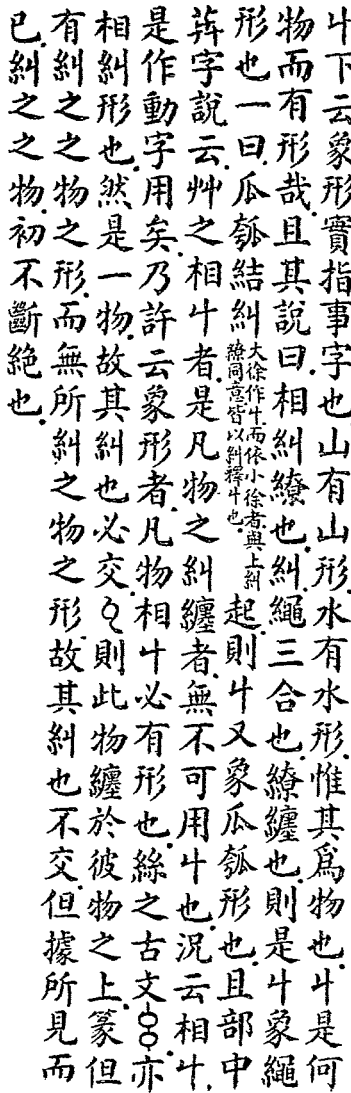 丩下云象形實指事字也山有山形水有水形惟其爲物也丩是何
物而有形哉且其說曰相糾繚也糾繩三合也繚纏也則是丩象繩
形也一曰瓜瓠結糾
大徐作丩而依小徐者與上糾
繚同意皆以糾釋丩也
起則丩又象瓜瓠形也且部中
茻字說云艸之相丩者是凡物之糾纏者無不可用丩也況云相丩
是作動字用矣乃許云象形者凡物相丩必有形也絲之古文亦
相糾形也然是一物故其糾也必交則此物纏於彼物之上篆但
有糾之之物之形而無所糾之物之形故其糾也不交但據所見而
已糾之之物初不斷絕也